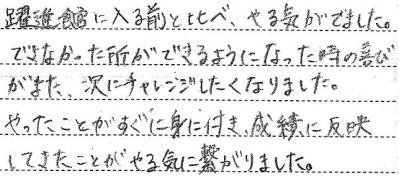 躍進館に入る前と比べ、やる気がでました。
できなかった所ができるようになった時の喜び
がまた、次にチャレンジしたくなりました。
やったことがすぐに身に付き、成績に反映
してきたことがやる気に繋がりました。